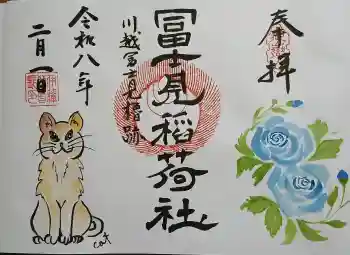 奉拝
冨士見稲荷社
川越冨士見櫓跡
令和八年
二月一日
cat